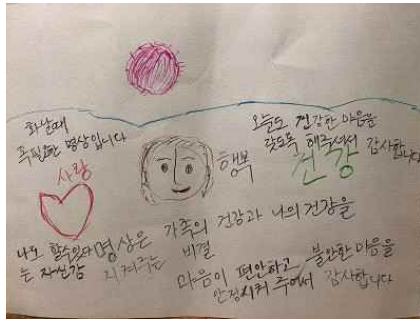 화날때
꼭필요한 명상입니다
오늘도 건강한 마음을
갖도록 해주셔서 감사합니다
사랑
행복
건강
나도 할수있다
는 자신감
명상은 가족의 건강과 나의 건강을
지켜주는 비결
마음이 편안하고 불안한 마음을
안정시켜 주어서 감사합니다